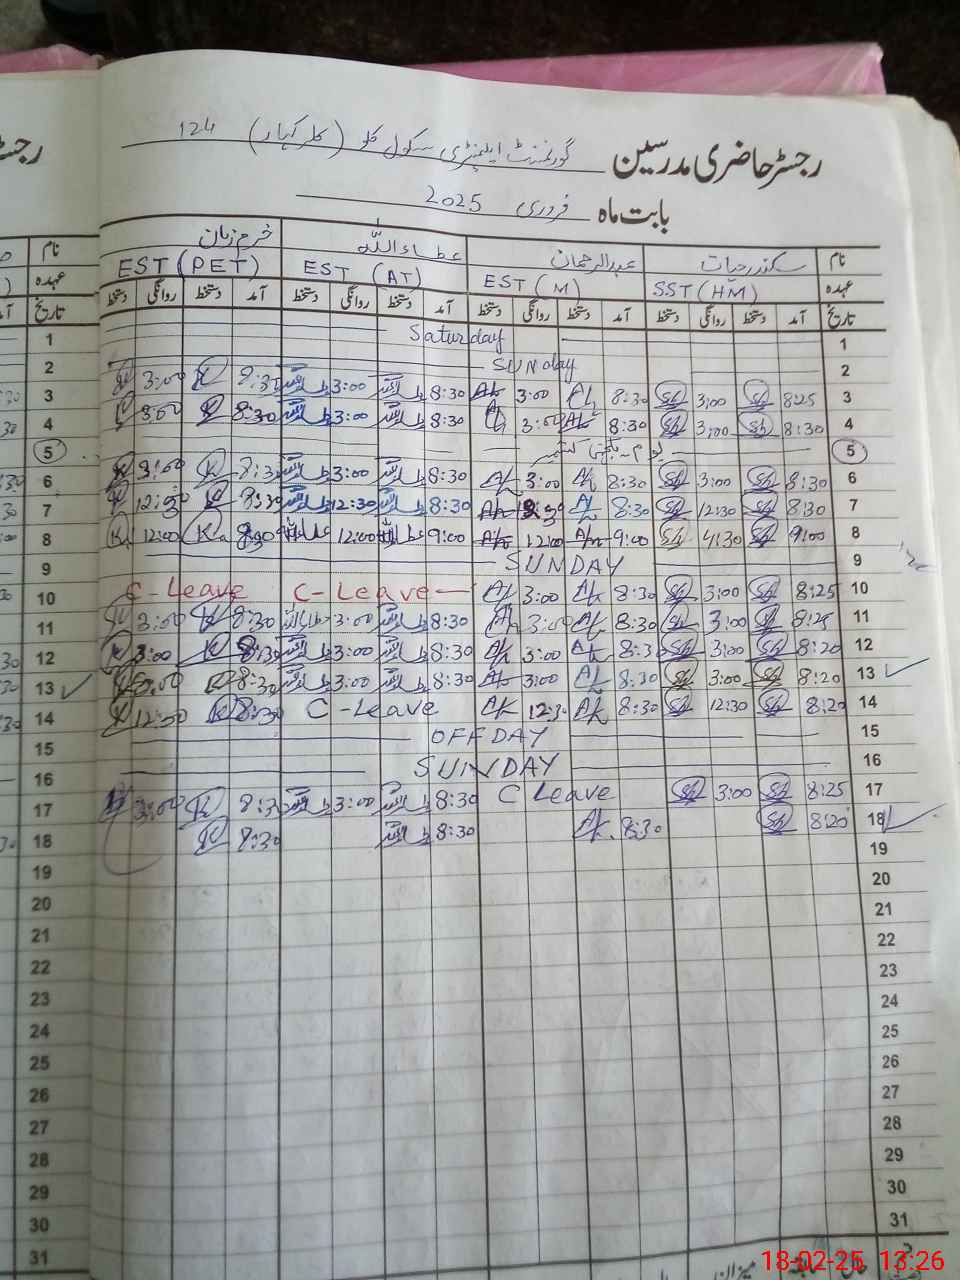 رجسٹر حاضری مدرسین گورنمنٹ ایلیمنٹری سکول کلو (کلر کہار) 124
بابت ماہ فروری 2025
نام سکندر حیات عبدالرحمان عطاء اللہ خرم زمان
عہدہ SST (HM) EST (M) EST (AT) EST (PET)
تاریخ آمد دستخط روانگی دستخط آمد دستخط روانگی دستخط آمد دستخط روانگی دستخط آمد دستخط روانگی دستخط
1 Saturday 1
2 SUNday 2
3 8:25 3:00 8:30 3:00 8:30 3:00 8:30 3:00 3
4 8:30 3:00 8:30 3:00 8:30 3:00 8:30 3:00 4
5 یوم یکجہتی کشمیر 5
6 8:30 3:00 8:30 3:00 8:30 3:00 8:30 3:00 6
7 8:30 12:30 8:30 8:30 12:30 8:30 12:30 7
8 9:00 4:30 9:00 12:00 9:00 12:00 12:00 8
9 SUNDAY 9
10 8:25 3:00 8:30 3:00 C-Leave C-Leave 10
11 8:25 3:00 8:30 3:00 8:30 3:00 8:30 3:00 11
12 8:20 3:00 8:30 3:00 8:30 3:00 8:30 3:00 12
13 8:20 3:00 8:30 3:00 8:30 3:00 8:30 3:00 13
14 8:20 12:30 8:30 12:30 C-Leave 8:30 12:30 14
15 OFFDAY 15
16 SUNDAY 16
17 8:25 3:00 C Leave 8:30 3:00 8:30 3:00 17
18 8:20 8:30 8:30 8:30 18
19 19
20 20
21 21
22 22
23 23
24 24
25 25
26 26
27 27
28 28
29 29
30 30
31 31
میزان
18-02-25 13:26